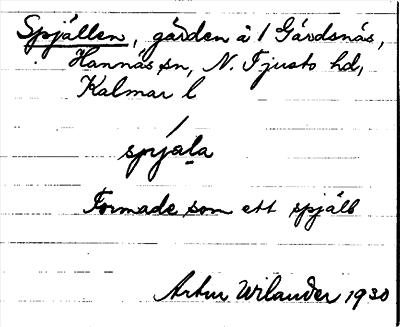 Spjällen, gärden å 1 Gårdsnäs,
Hannäs sn, N. Tjusts hd,
Kalmar l
spjala
Formade som ett spjäll
Artur Wilander 1930